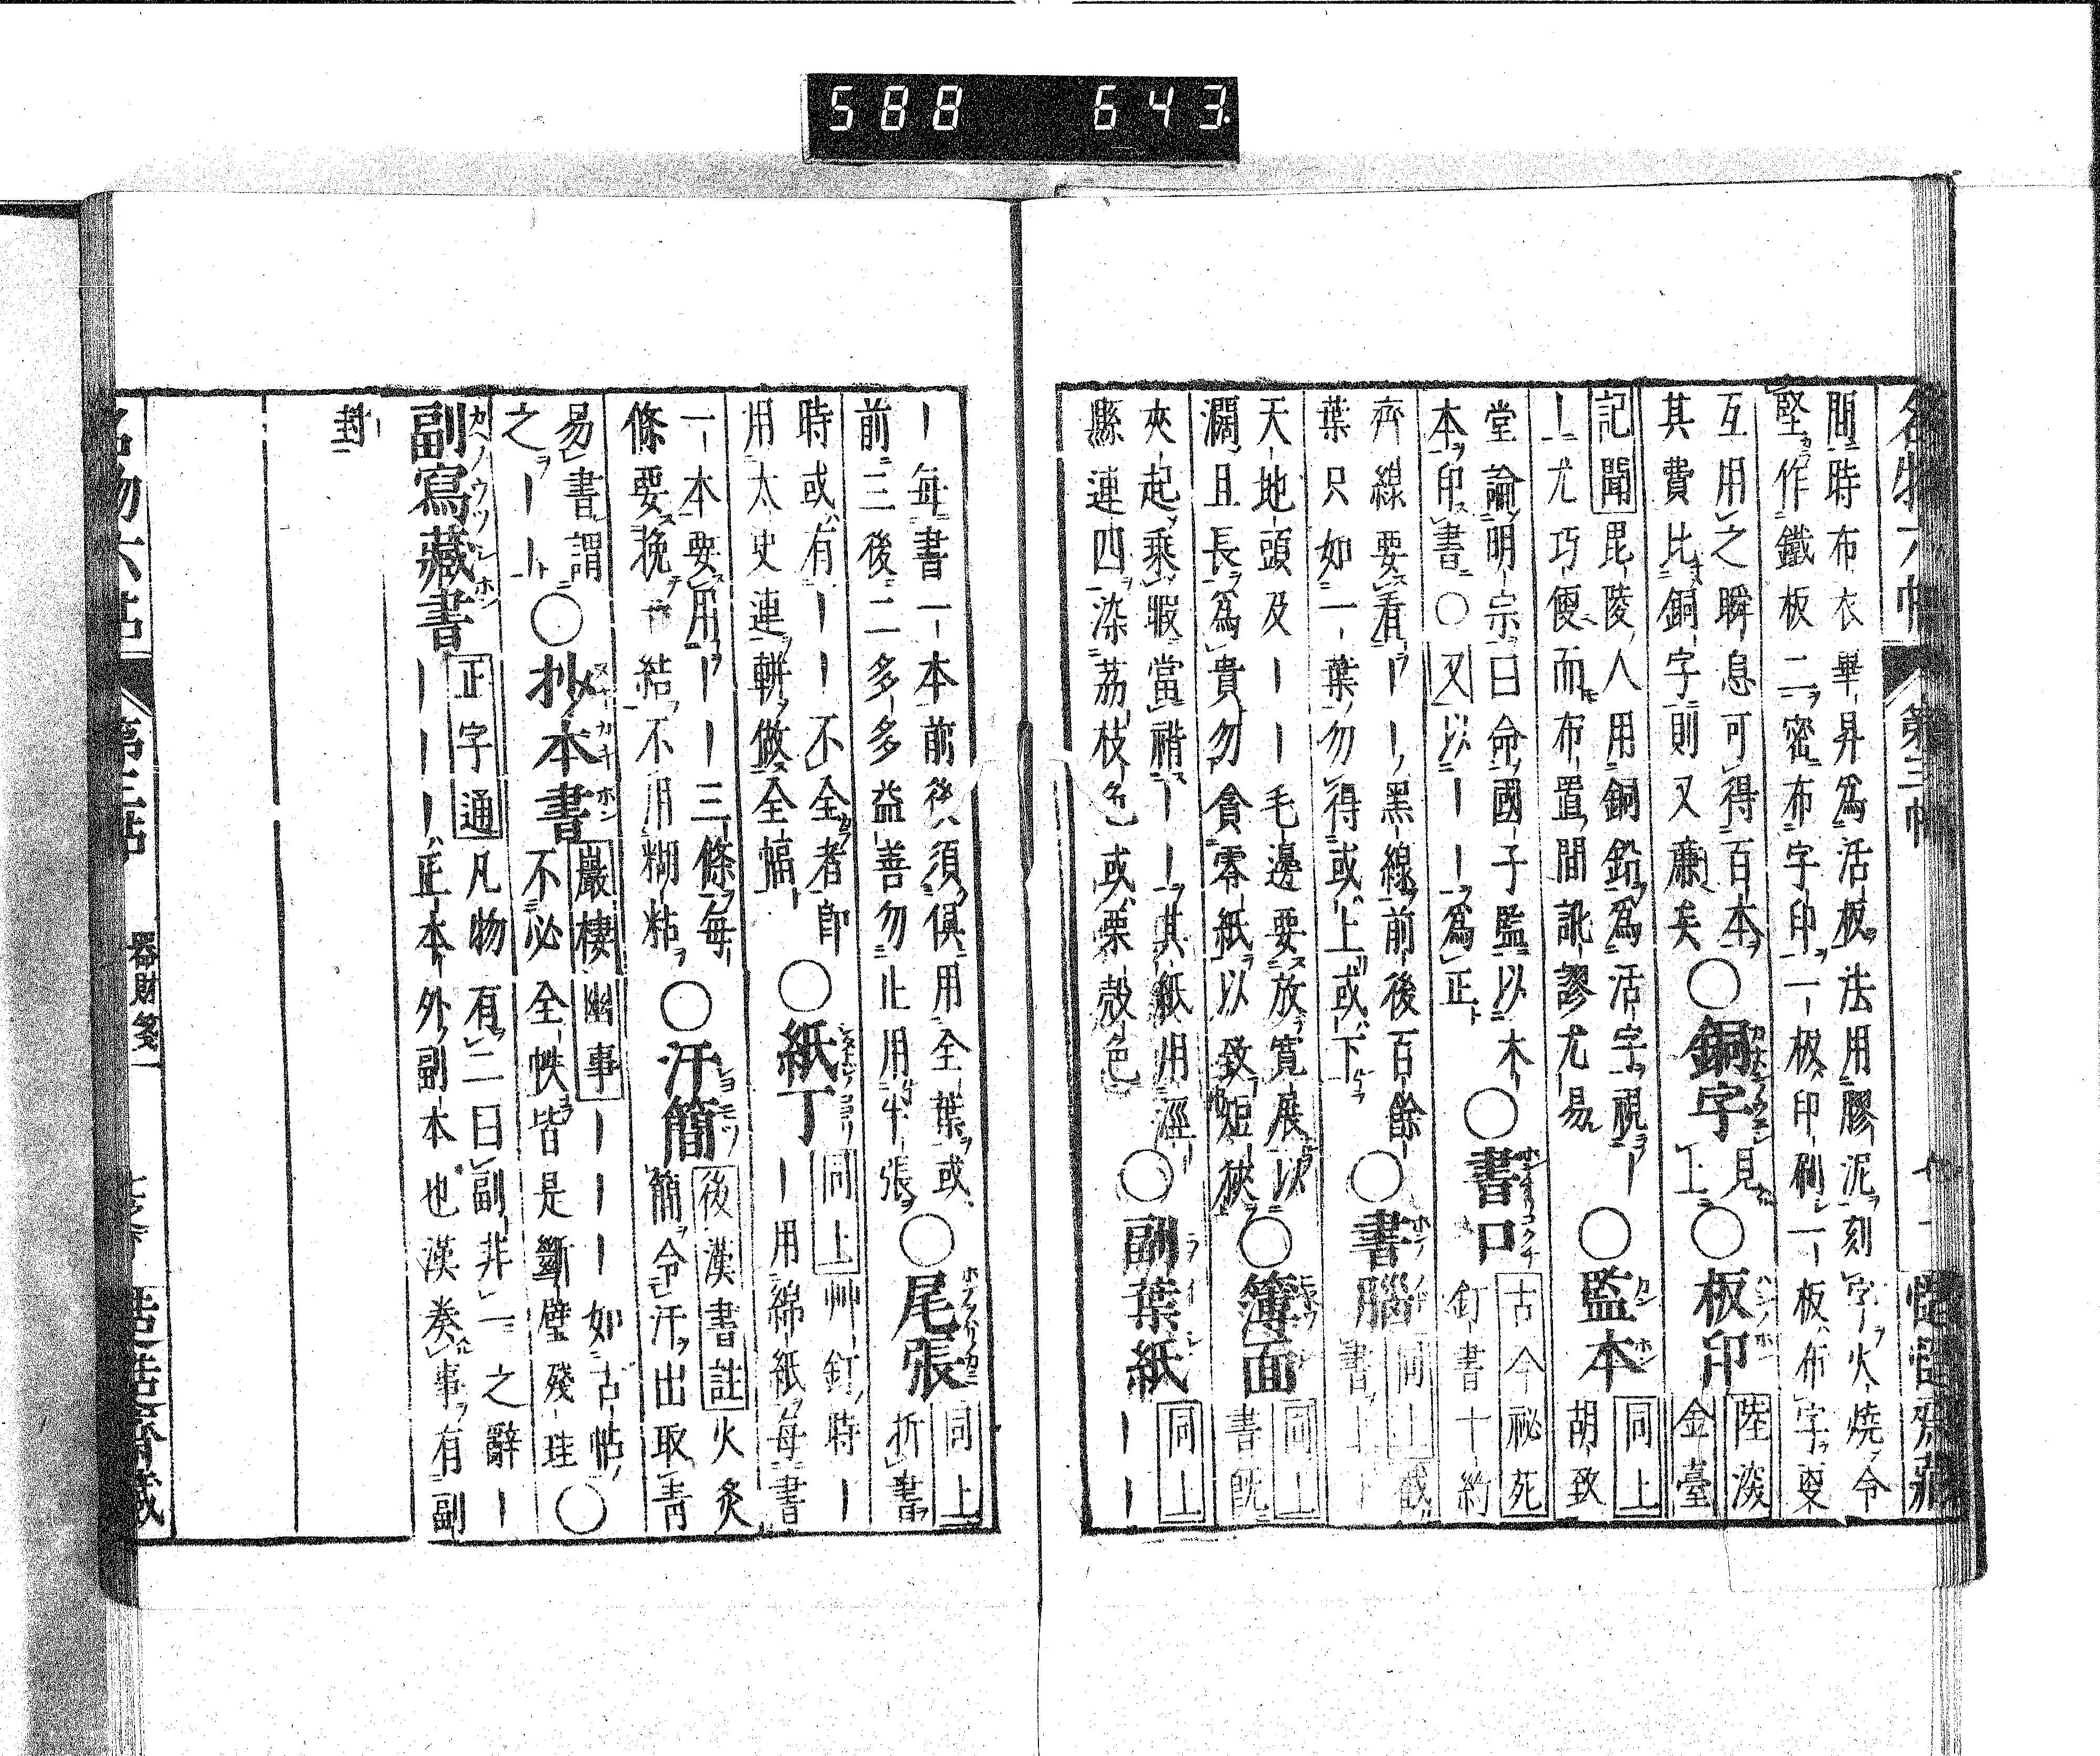 588 643
名物六帖 第三帖
間時布衣畢昇為活板法用膠泥刻字火燒令
堅作鐵板二密布字印一板印刷一板布字更
互用之瞬息可得百本
其費比銅字則又廉矣
○銅字
見上
○板印
陸深金臺
記聞
毘陵人用銅鉛為活字視
尤巧便而布置間訛謬尤易
○監本
同上
胡致
堂論明宗曰命國子監以木
本印書○又以ーー為正
○書口
古今祕苑
釘書十約
齊線要看ーー黑線前後百餘
葉只如一葉勿得或上或下
○書腦
同上
天地頭及ーー毛邊要放寬展以
濶且長為貴勿貪零紙以致短狹
○簿面
同上
書既
夾起乘暇當褙ーー其紙用涇
縣連四染荔枝色或栗殼色
○副葉紙
同上
ーー
ー每書一本前後須俱用全葉或
前三後二多多益善勿止用半張
○尾張
同上
折書
時或有ーー不全者卽
用太史連耕做全幅
○紙丁
同上
艸釘時ー
ー用綿紙每書
一本要用ーー三條每
條要挽一結不用糊粘
○汗簡
後漢書註
火炙
簡令汗出取青
易書謂
之ーー
○抄本書
巖棲幽事
ーーー如古帖
不必全帙皆是斷璧殘珪
○
副寫藏書
正字通
凡物有二曰副非一之辭ー
ーーー正本外副本也漢奏事有副
封
名物六帖 第三帖 器財箋一